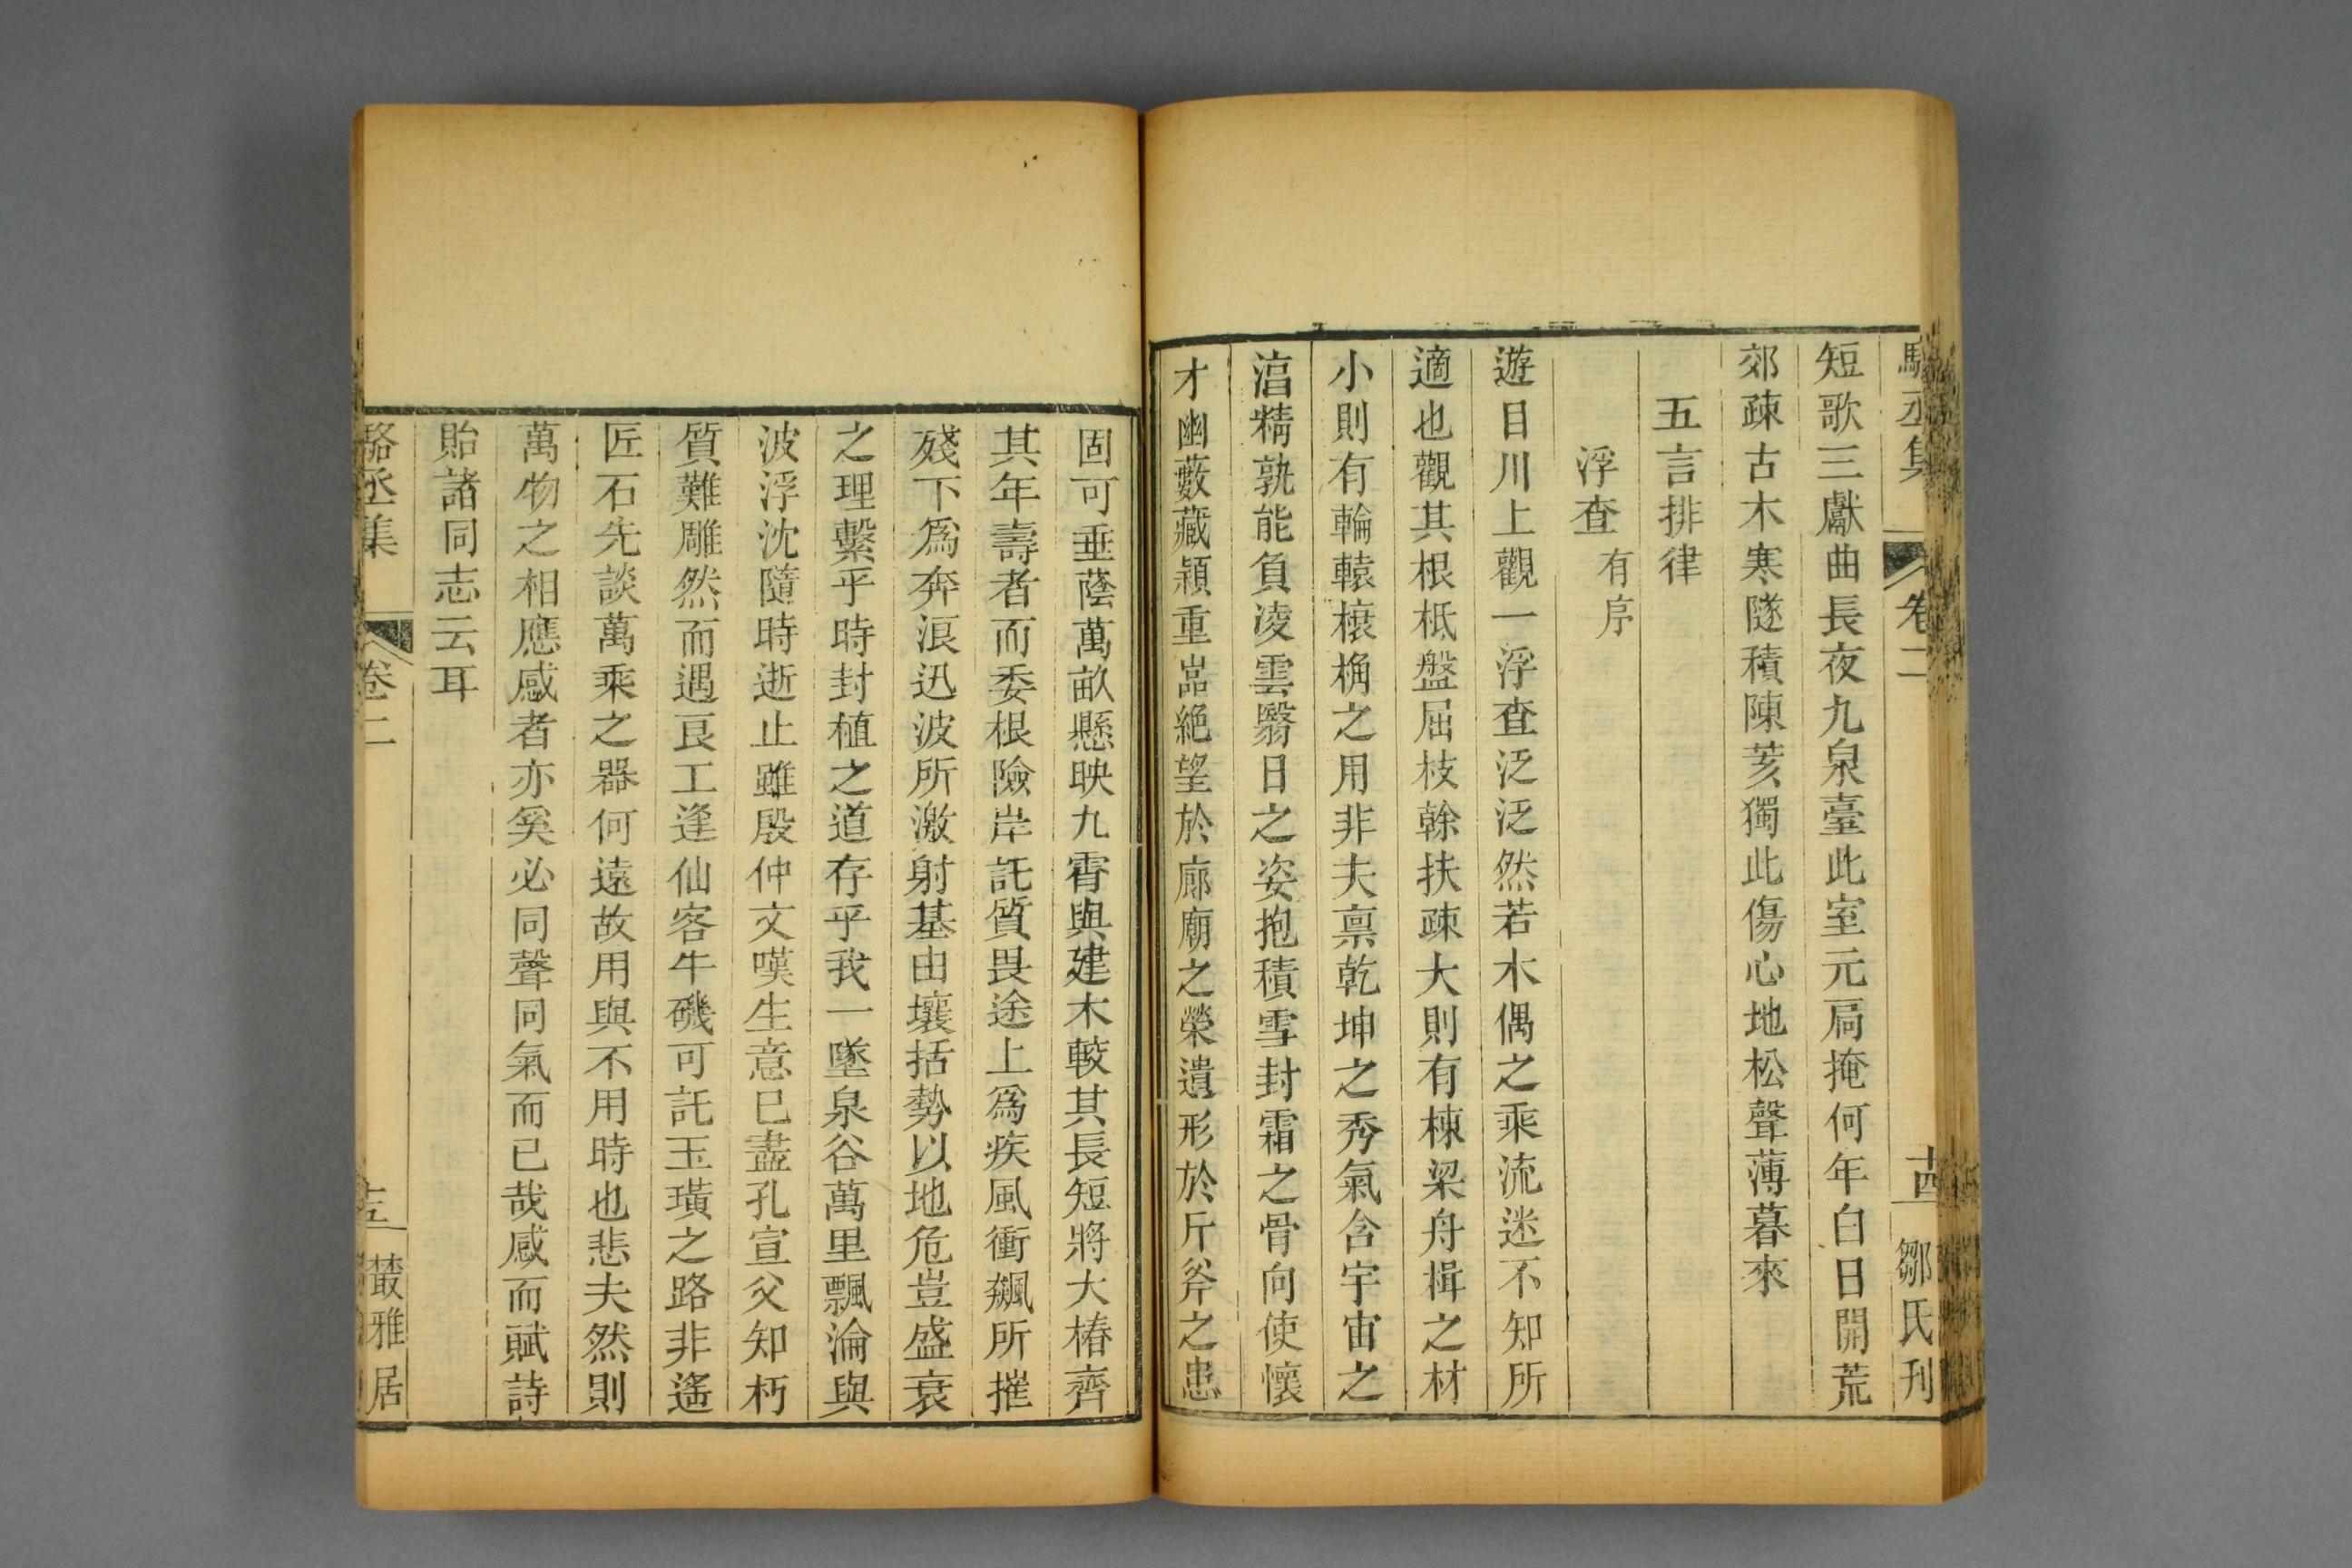 駱丞集 卷二 十四 鄒氏刊
短歌三獻曲長夜九泉臺此室元扃掩何年白日開荒
郊疎古木寒隧積陳荄獨此傷心地松聲薄暮來
五言排律
浮查有序
遊目川上觀一浮查泛泛然若木偶之乘流迷不知所
適也觀其根柢盤屈枝榦扶疎大則有棟梁舟揖之材
小則有輪轅榱桷之用非夫禀乾坤之秀氣含宇宙之
淳精孰能負凌雲翳日之姿抱積雪封霜之骨向使懷
才幽藪藏穎重嵓絶望於廊廟之榮遺形於斤斧之患
固可垂蔭萬畝懸映九霄與建木較其長短將大椿齊
其年壽者而委根險岸託質畏途上為疾風衝飆所摧
殘下為奔浪迅波所激射基由壤括勢以地危豈盛衰
之理繫乎時封植之道存乎我一墜泉谷萬里飄淪與
波浮沈隨時逝止雖殷仲文嘆生意已盡孔宣父知朽
質難雕然而遇良工逢仙客牛磯可託玉璜之路非遙
匠石先談萬乘之器何遠故用與不用時也悲夫然則
萬物之相應感者亦奚必同聲同氣而已哉感而賦詩
貽諸同志云耳
駱丞集 卷二 十五 叢雅居